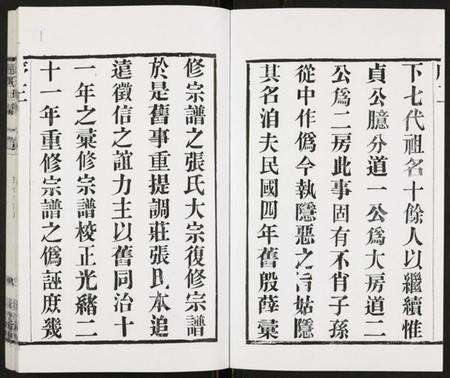 下七代祖名十餘人以繼續惟
貞公臆分道一公爲大房道二
公爲二房此事固有不肖子孫
從中作僞今執隱惡之旨姑隱
其名洎夫民國四年舊殷薛彙
修宗譜之張氏大宗復修宗譜
於是舊事重提調莊張氏本追
遠徵信之誼力主以舊同治十
一年之稾修宗譜校正光緒二
十一年重修宗譜之僞誣庶幾